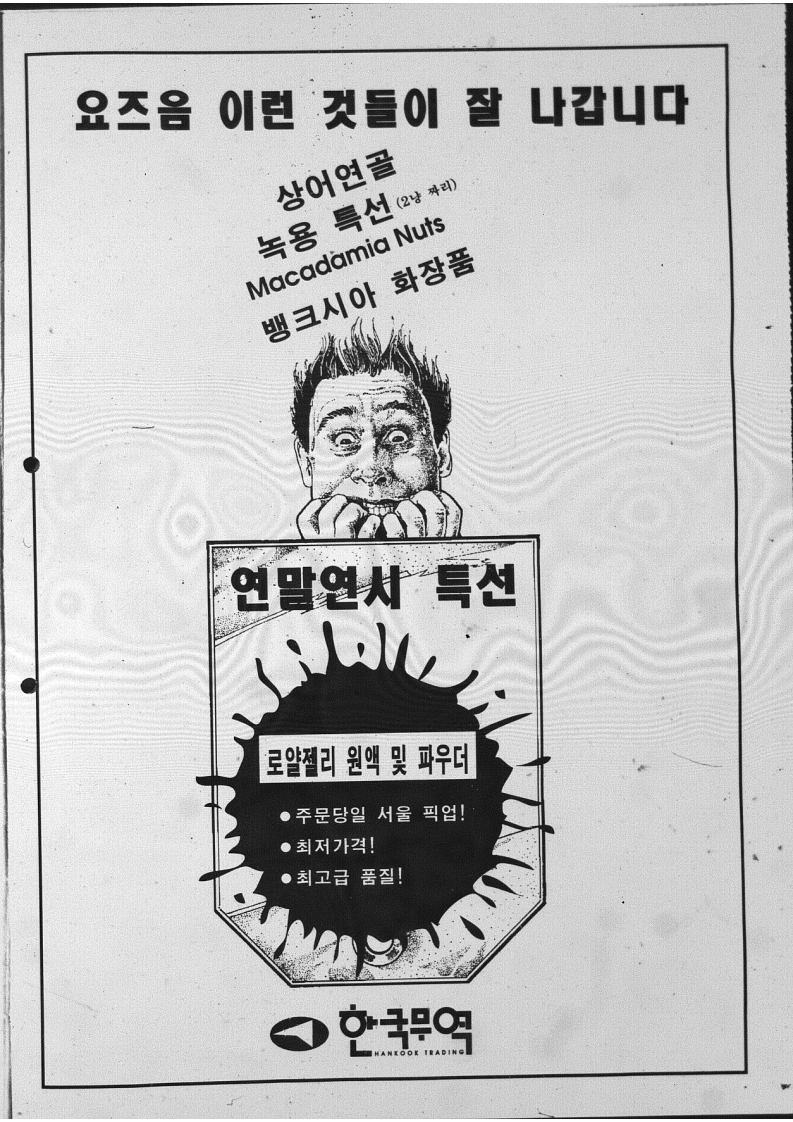 요즈음 이런 것들이 잘 나갑니다
상어연골
녹용 특선 (2냥 짜리)
Macadamia Nuts
뱅크시아 화장품
연말연시 특선
로얄젤리 원액 및 파우더
●주문당일 서울 픽업!
●최저가격!
●최고급 품질!
한국무역
HANKOOK TRADING